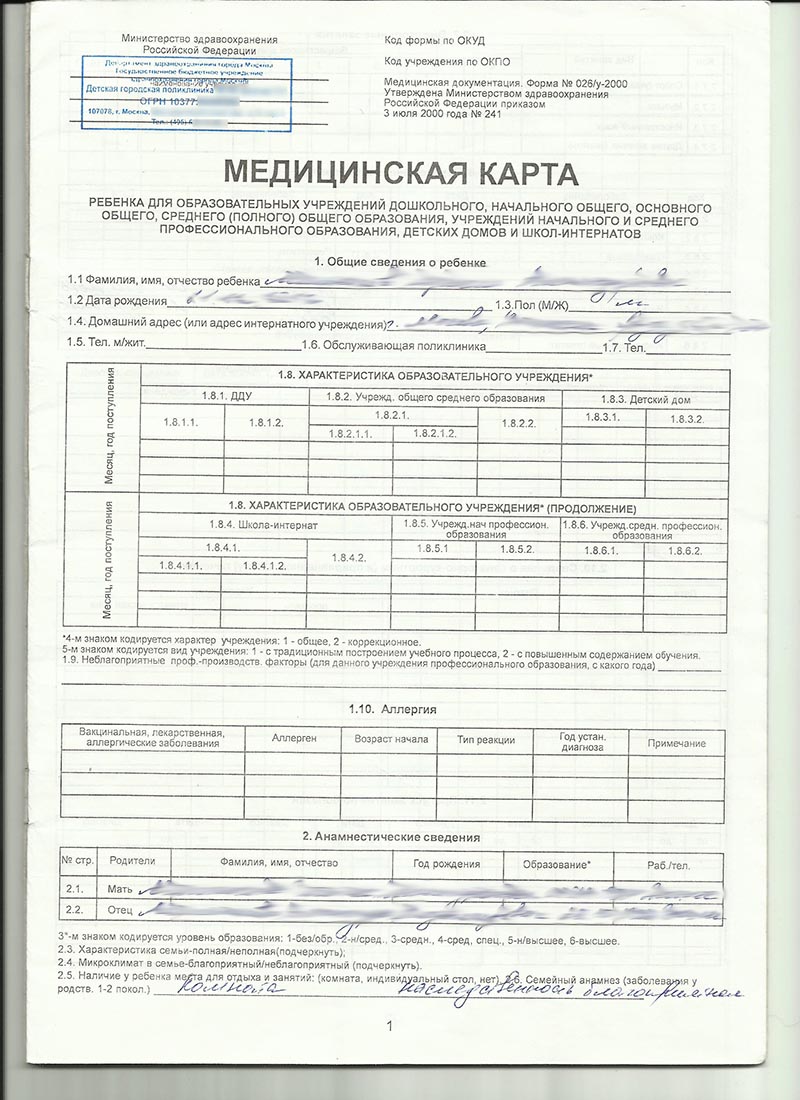 Министерство здравоохранения
Российской Федерации
Код формы по ОКУД
Код учреждения по ОКПО
Медицинская документация. Форма № 026/у-2000
Утверждена Министерством здравоохранения
Российской Федерации приказом
3 июля 2000 года № 241
Департамент здравоохранения города Москвы
Государственное бюджетное учреждение
здравоохранения города Москвы
Детская городская поликлиника
ОГРН 10377
107078, г. Москва,
Тел.: (495)
МЕДИЦИНСКАЯ КАРТА
РЕБЕНКА ДЛЯ ОБРАЗОВАТЕЛЬНЫХ УЧРЕЖДЕНИЙ ДОШКОЛЬНОГО, НАЧАЛЬНОГО ОБЩЕГО, ОСНОВНОГО
ОБЩЕГО, СРЕДНЕГО (ПОЛНОГО) ОБЩЕГО ОБРАЗОВАНИЯ, УЧРЕЖДЕНИЙ НАЧАЛЬНОГО И СРЕДНЕГО
ПРОФЕССИОНАЛЬНОГО ОБРАЗОВАНИЯ, ДЕТСКИХ ДОМОВ И ШКОЛ-ИНТЕРНАТОВ
1. Общие сведения о ребенке
1.1 Фамилия, имя, отчество ребенка
1.2 Дата рождения 1.3.Пол (М/Ж)
1.4. Домашний адрес (или адрес интернатного учреждения)
1.5. Тел. м/жит. 1.6. Обслуживающая поликлиника 1.7. Тел.
Месяц, год поступления
1.8. ХАРАКТЕРИСТИКА ОБРАЗОВАТЕЛЬНОГО УЧРЕЖДЕНИЯ*
1.8.1. ДДУ 1.8.2. Учрежд. общего среднего образования 1.8.3. Детский дом
1.8.1.1. 1.8.1.2. 1.8.2.1. 1.8.2.2. 1.8.3.1. 1.8.3.2.
1.8.2.1.1. 1.8.2.1.2.
Месяц, год поступления
1.8. ХАРАКТЕРИСТИКА ОБРАЗОВАТЕЛЬНОГО УЧРЕЖДЕНИЯ* (ПРОДОЛЖЕНИЕ)
1.8.4. Школа-интернат 1.8.5. Учрежд.нач професcион. образования 1.8.6. Учрежд.средн. профессион. образования
1.8.4.1. 1.8.4.2. 1.8.5.1 1.8.5.2. 1.8.6.1. 1.8.6.2.
1.8.4.1.1. 1.8.4.1.2.
*4-м знаком кодируется характер учреждения: 1 - общее, 2 - коррекционное.
5-м знаком кодируется вид учреждения: 1 - с традиционным построением учебного процесса, 2 - с повышенным содержанием обучения.
1.9. Неблагоприятные проф.-производств. факторы (для данного учреждения профессионального образования, с какого года)
1.10. Аллергия
Вакцинальная, лекарственная, аллергические заболевания Аллерген Возраст начала Тип реакции Год устан. диагноза Примечание
2. Анамнестические сведения
№ стр. Родители Фамилия, имя, отчество Год рождения Образование* Раб./тел.
2.1. Мать
2.2. Отец
3*-м знаком кодируется уровень образования: 1-без/обр., 2-н/сред., 3-средн., 4-сред, спец., 5-н/высшее, 6-высшее.
2.3. Характеристика семьи-полная/неполная(подчеркнуть);
2.4. Микроклимат в семье-благоприятный/неблагоприятный (подчеркнуть).
2.5. Наличие у ребенка места для отдыха и занятий: (комната, индивидуальный стол, нет) 2.6. Семейный анамнез (заболевания у
родств. 1-2 покол.) комната наследственность благоприятная
1